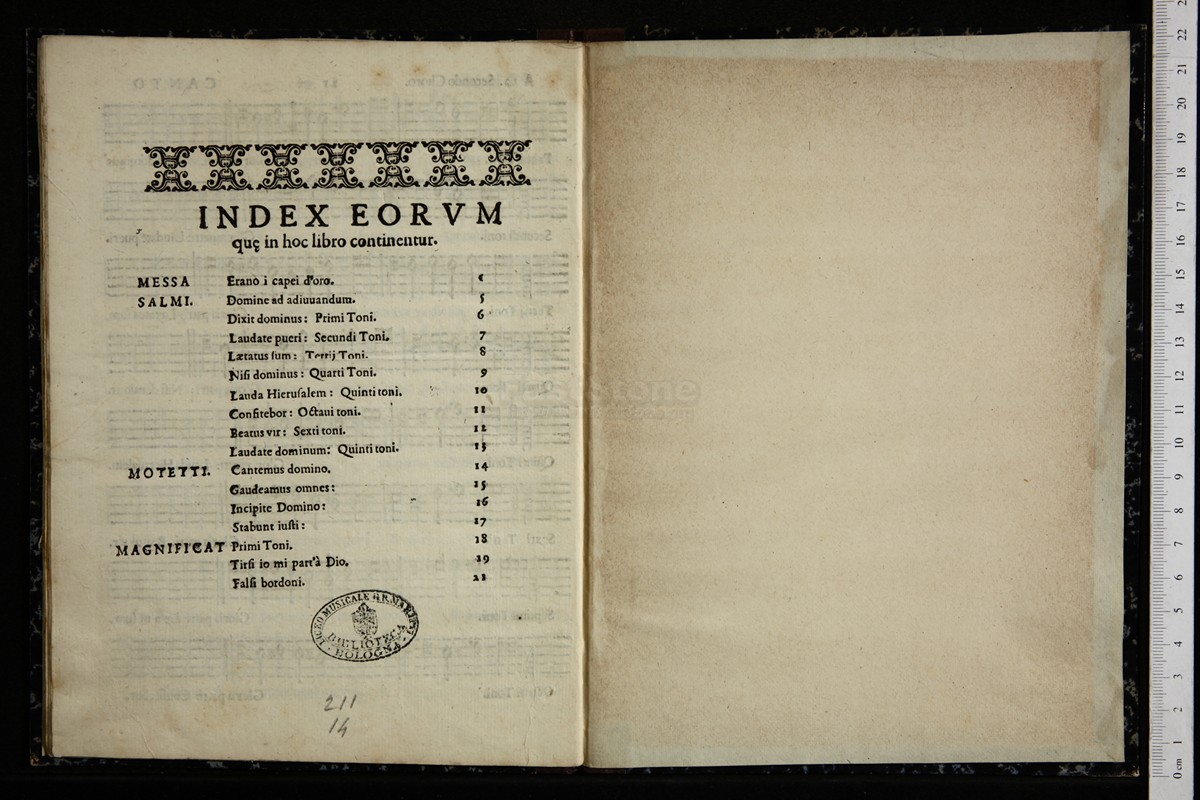 INDEX EORVM
quę in hoc libro continentur.
MESSA Erano i capei d'oro.
SALMI. Domine ad adiuuandum. 5
Dixit dominus: Primi Toni. 6
Laudate pueri: Secundi Toni. 7
Lætatus ſum: Terrij Toni. 8
Niſi dominus: Quarti Toni. 9
Lauda Hieruſalem: Quinti toni. 10
Confitebor: Octaui toni. 11
Beatus vir: Sexti toni. 12
Laudate dominum: Quinti toni. 13
MOTETTI. Cantemus domino. 14
Gaudeamus omnes: 15
Incipite Domino: 16
Stabunt iuſti: 17
MAGNIFICAT Primi Toni. 18
Tirſi io mi part'à Dio. 19
Falſi bordoni. 21
LICEO MUSICALE
BIBLIOTECA
BOLOGNA
211
14
0 cm 1 2 3 4 5 6 7 8 9 10 11 12 13 14 15 16 17 18 19 20 21 22